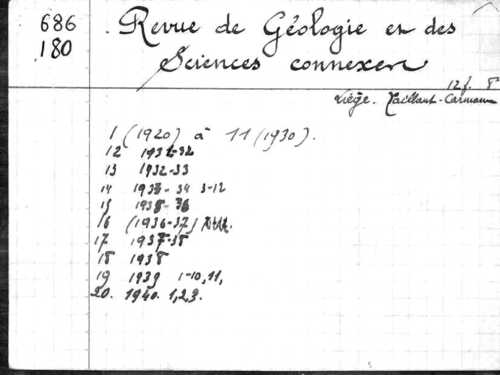 686
180
Revue de Géologie et des
Sciences connexes
12 f. 8
Liège. Vaillant-Carmanne
1 (1920) à 11 (1930).
12 1931-32
13 1932-33
14 1933-34 3-12
15 1935-36
16 (1936-37)
17 1937-38
18 1938
19 1939 1-10, 11,
20. 1940. 1,2,3.